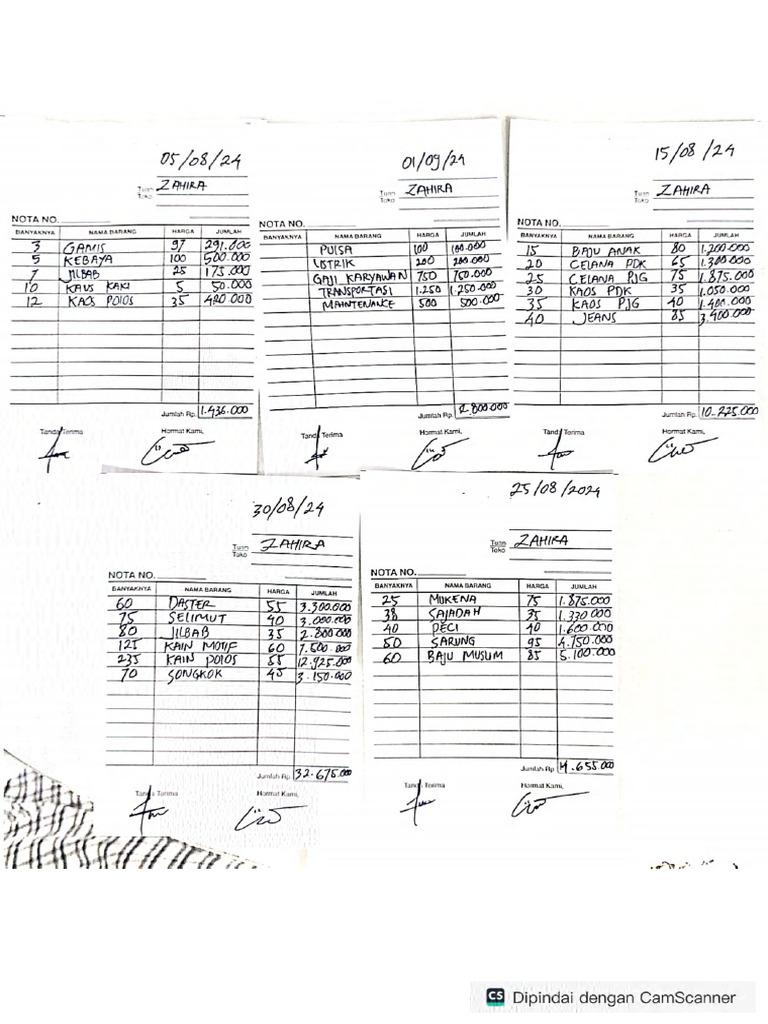 05/08/24
Tuan ZAHIRA
Toko
NOTA NO.
BANYAKNYA NAMA BARANG HARGA JUMLAH
3 GAMIS 97 291.000
5 KEBAYA 100 500.000
7 JILBAB 25 175.000
10 KAUS KAKI 5 50.000
12 KAOS POLOS 35 420.000
Jumlah Rp. 1.436.000
Tanda Terima Hormat Kami,
01/09/24
Tuan ZAHIRA
Toko
NOTA NO.
BANYAKNYA NAMA BARANG HARGA JUMLAH
PULSA 100 100.000
LISTRIK 200 200.000
GAJI KARYAWAN 750 750.000
TRANSPORTASI 1.250 1.250.000
MAINTENANCE 500 500.000
Jumlah Rp. 2.800.000
Tanda Terima Hormat Kami,
15/08/24
Tuan ZAHIRA
Toko
NOTA NO.
BANYAKNYA NAMA BARANG HARGA JUMLAH
15 BAJU ANAK 80 1.200.000
20 CELANA PDK 65 1.300.000
25 CELANA PJG 75 1.875.000
30 KAOS PDK 35 1.050.000
35 KAOS PJG 40 1.400.000
40 JEANS 85 3.400.000
Jumlah Rp. 10.225.000
Tanda Terima Hormat Kami,
30/08/24
Tuan ZAHIRA
Toko
NOTA NO.
BANYAKNYA NAMA BARANG HARGA JUMLAH
60 DASTER 55 3.300.000
75 SELIMUT 40 3.000.000
80 JILBAB 35 2.800.000
125 KAIN MOTIF 60 7.500.000
235 KAIN POLOS 55 12.925.000
70 SONGKOK 45 3.150.000
Jumlah Rp. 32.675.000
Tanda Terima Hormat Kami,
25/08/2024
Tuan ZAHIRA
Toko
NOTA NO.
BANYAKNYA NAMA BARANG HARGA JUMLAH
25 MUKENA 75 1.875.000
38 SAJADAH 35 1.330.000
40 PECI 40 1.600.000
50 SARUNG 95 4.750.000
60 BAJU MUSLIM 85 5.100.000
Jumlah Rp. 14.655.000
Tanda Terima Hormat Kami,
CS Dipindai dengan CamScanner